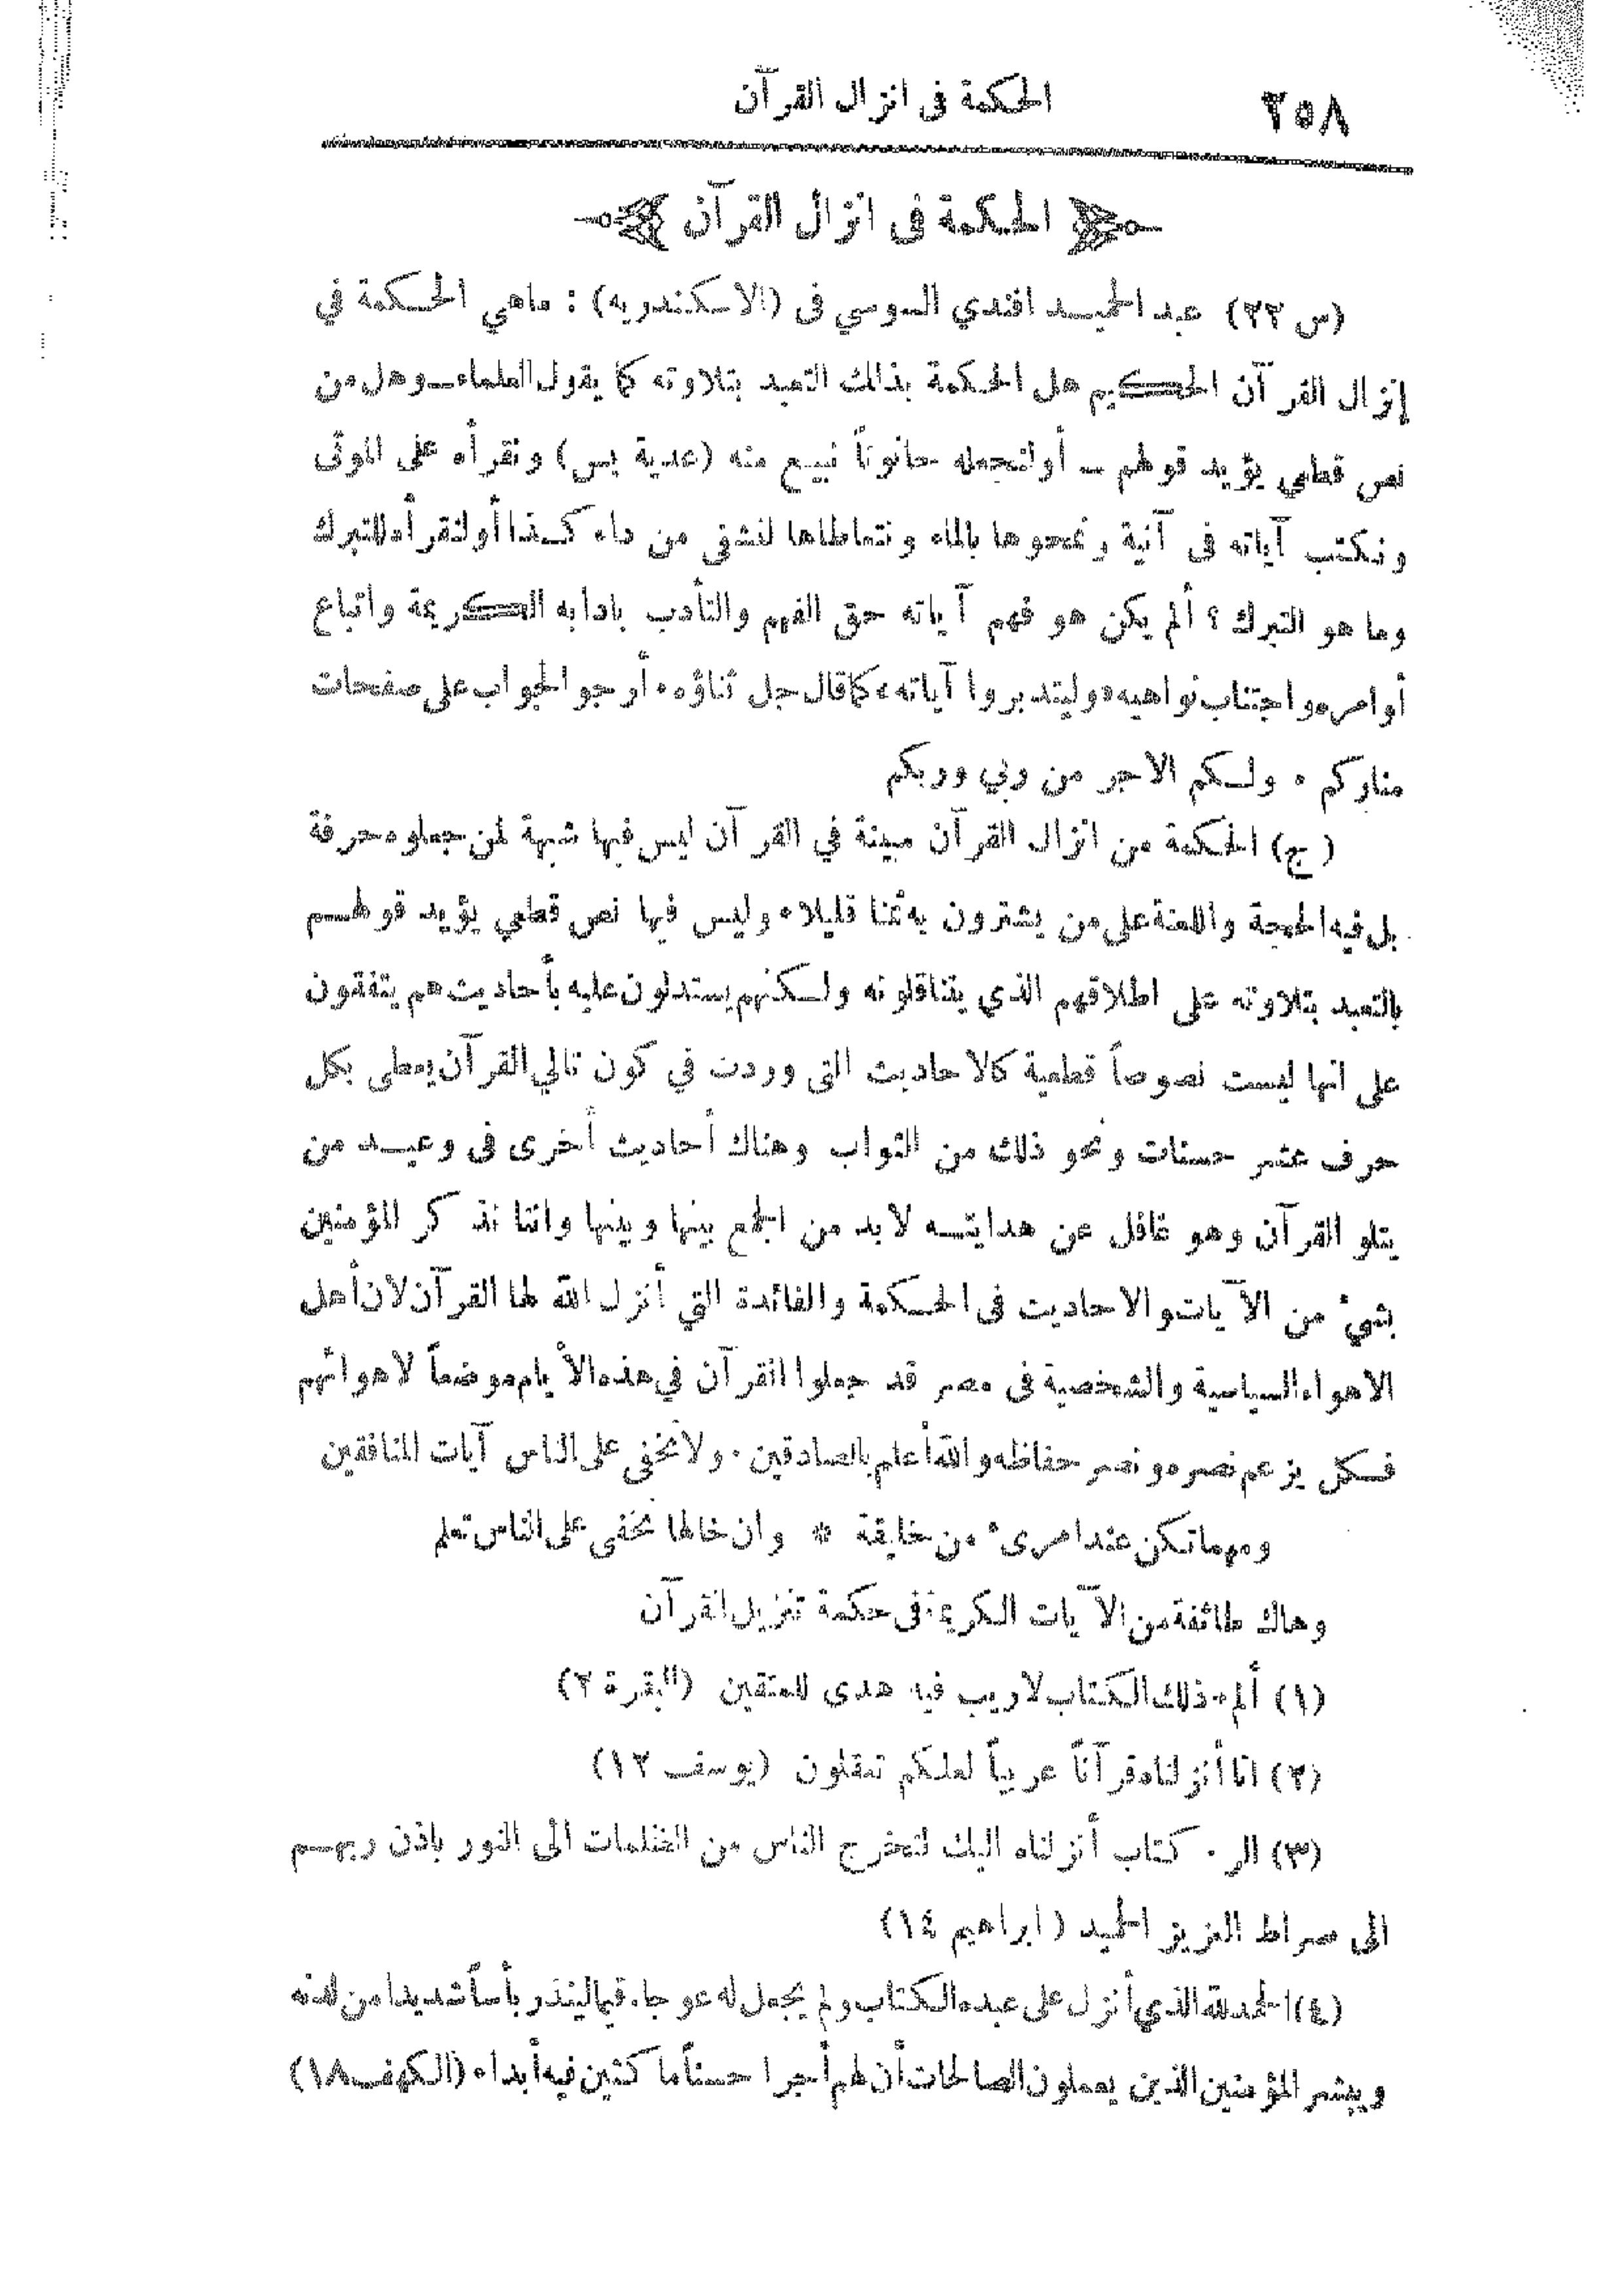 ٢٥٨
الحكمة فى انزال القرآن
الحكمة فى انزال القرآن
(س ٢٢) عبد الحميد افندي السوسي فى (الاسكندريه) : ماهي الحكمة في
إنزال القرآن الحكيم هل الحكمة بذلك التعبد بتلاوته كما يقول العلماء ــ وهل من
نص قطعي يؤيد قولهم ــ أو لنجعله حانوتاً نبيع منه (عدية يس) ونقرأه على الموتى
ونكتب آياته فى آنية ونمحوها بالماء ونتعاطاها لنشفى من داء كذا أو لنقرأه للتبرك
وما هو التبرك ؟ ألم يكن هو فهم آياته حق الفهم والتأدب بادابه الكريمة واتباع
أوامره واجتناب نواهيه «وليتدبروا آياته» كما قال جل ثناؤه . أرجو الجواب على صفحات
مناركم . ولكم الاجر من ربي وربكم
(ج) الحكمة من انزال القرآن مبينة في القرآن ليس فيها شبهة لمن جعلوه حرفة
بل فيه الحجة واللعنة على من يشترون به ثمنا قليلا . وليس فيها نص قطعي يؤيد قولهم
بالتعبد بتلاوته على اطلاقهم الذي يتناقلونه ولكنهم يستدلون عليه بأحاديث هم يتفقون
على انها ليست نصوصاً قطعية كالاحاديث التى وردت في كون تالي القرآن يعطى بكل
حرف عشر حسنات ونحو ذلك من الثواب وهناك أحاديث أخرى فى وعيد من
يتلو القرآن وهو غافل عن هدايته لا بد من الجمع بينها وبينها واننا نذكر المؤمنين
بشيء من الآيات والاحاديث فى الحكمة والفائدة التي أنزل الله لها القرآن لان أهل
الاهواء السياسية والشخصية فى مصر قد جعلوا القرآن في هذه الأيام موضعاً لاهوائهم
فكل يزعم نصره ونصر حفاظه والله أعلم بالصادقين . ولا تخفى على الناس آيات المنافقين
ومهما تكن عند امرىء من خليقة * وان خالها تخفى على الناس تعلم
وهاك طائفة من الآيات الكريمة فى حكمة تنزيل القرآن
(١) ألم . ذلك الكتاب لا ريب فيه هدى للمتقين (البقرة ٢)
(٢) انا أنزلناه قرآناً عربياً لعلكم تعقلون (يوسف ١٢)
(٣) الر . كتاب أنزلناه اليك لتخرج الناس من الظلمات الى النور باذن ربهم
الى صراط العزيز الحميد (ابراهيم ١٤)
(٤) الحمد لله الذي أنزل على عبده الكتاب ولم يجعل له عوجا . قيما لينذر بأساً شديدا من لدنه
ويبشر المؤمنين الذين يعملون الصالحات أن لهم أجرا حسناً ما كثين فيه أبدا . (الكهف ١٨)